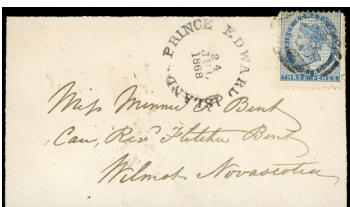 PRINCE EDWARD ISLAND
24
JUL
1868
THREE PENCE
Miss Minnie R Bent
Care Revd Fletcher Bent
Wilmot Novascotia